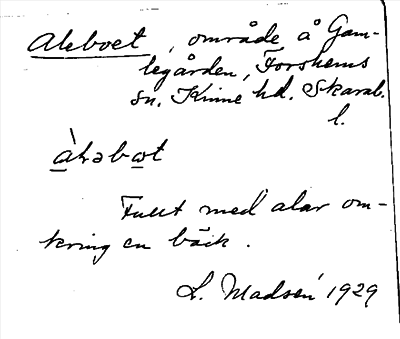 Aleboet, område å Gam-
legården, Forshems
sn. Kinne hd. Skarab.
l.
àləbot
Fullt med alar om-
kring en bäck.
L. Madsén 1929